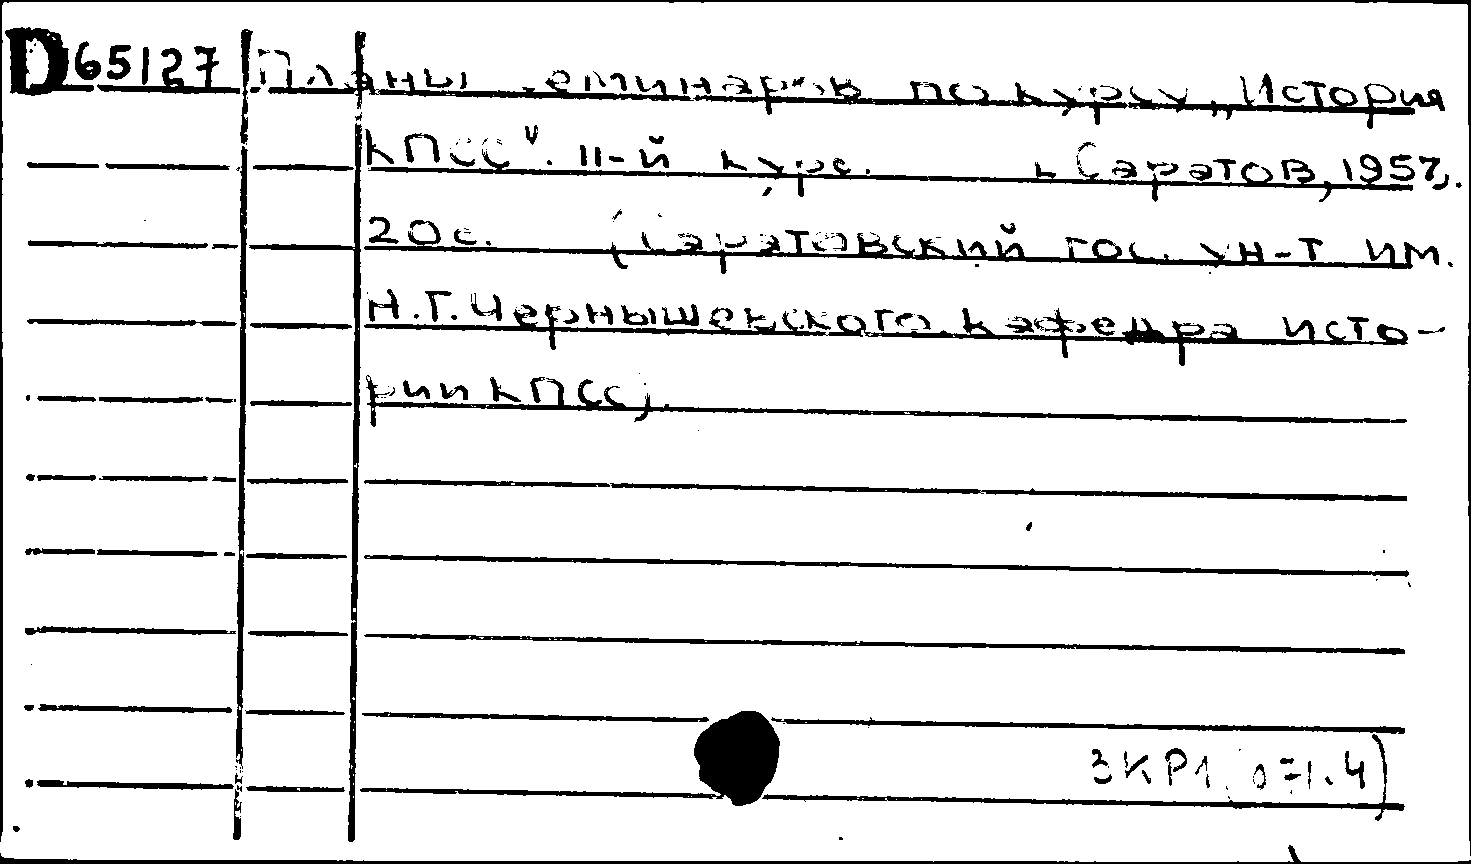 D65127 Планы семинаров по курсу „История
КПСС". II-й курс. Саратов, 1957.
20с. (Саратовский гос. ун-т им.
Н.Г. Чернышевского. Кафедра исто-
рии КПСС).
3КР1(071.4)